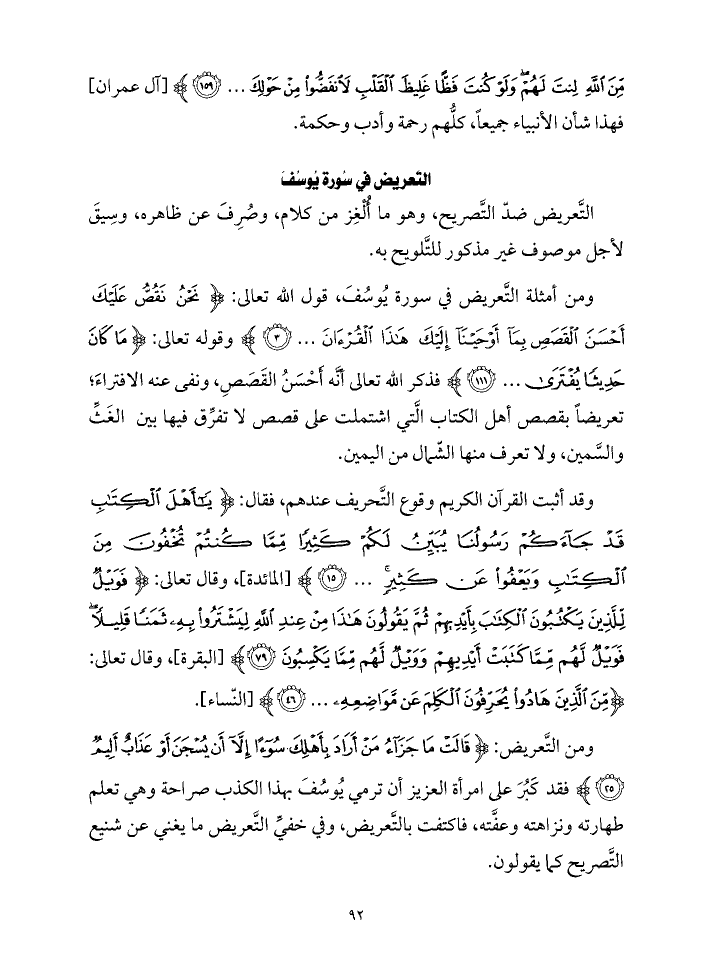 مِّنَ اللَّهِ لِنتَ لَهُمْ ۖ وَلَوْ كُنتَ فَظًّا غَلِيظَ الْقَلْبِ لَانفَضُّوا مِنْ حَوْلِكَ ... ﴿١٥٩﴾ [آل عمران]
فهذا شأن الأنبياء جميعاً، كلُّهم رحمة وأدب وحكمة.
التَّعريض في سُورة يُوسُفَ
التَّعريض ضدّ التَّصريح، وهو ما أُلْغِز من كلام، وصُرِفَ عن ظاهره، وسِيقَ
لأجل موصوف غير مذكور للتَّلويح به.
ومن أمثلة التَّعريض في سورة يُوسُفَ، قول الله تعالى: ﴿ نَحْنُ نَقُصُّ عَلَيْكَ
أَحْسَنَ الْقَصَصِ بِمَا أَوْحَيْنَا إِلَيْكَ هَٰذَا الْقُرْءَانَ ... ﴿٣﴾ ﴾ وقوله تعالى: ﴿ مَا كَانَ
حَدِيثًا يُفْتَرَىٰ ... ﴿١١١﴾ ﴾ فذكر الله تعالى أنَّه أَحْسَنُ القَصَصِ، ونفى عنه الافتراءَ؛
تعريضاً بقصص أهل الكتاب الَّتي اشتملت على قصص لا تفرِّق فيها بين الغَثِّ
والسَّمين، ولا تعرف منها الشّمال من اليمين.
وقد أثبت القرآن الكريم وقوع التَّحريف عندهم، فقال: ﴿ يَٰٓأَهْلَ الْكِتَٰبِ
قَدْ جَآءَكُمْ رَسُولُنَا يُبَيِّنُ لَكُمْ كَثِيرًا مِّمَّا كُنتُمْ تُخْفُونَ مِنَ
الْكِتَٰبِ وَيَعْفُوا عَن كَثِيرٍ ۚ ... ﴿١٥﴾ ﴾ [المائدة]، وقال تعالى: ﴿ فَوَيْلٌ
لِّلَّذِينَ يَكْتُبُونَ الْكِتَٰبَ بِأَيْدِيهِمْ ثُمَّ يَقُولُونَ هَٰذَا مِنْ عِندِ اللَّهِ لِيَشْتَرُوا بِهِۦ ثَمَنًا قَلِيلًا ۖ
فَوَيْلٌ لَّهُم مِّمَّا كَتَبَتْ أَيْدِيهِمْ وَوَيْلٌ لَّهُم مِّمَّا يَكْسِبُونَ ﴿٧٩﴾ ﴾ [البقرة]، وقال تعالى:
﴿ مِّنَ الَّذِينَ هَادُوا يُحَرِّفُونَ الْكَلِمَ عَن مَّوَاضِعِهِۦ ... ﴿٤٦﴾ ﴾ [النّساء].
ومن التَّعريض: ﴿ قَالَتْ مَا جَزَآءُ مَنْ أَرَادَ بِأَهْلِكَ سُوٓءًا إِلَّآ أَن يُسْجَنَ أَوْ عَذَابٌ أَلِيمٌ
﴿٢٥﴾ ﴾ فقد كَبُرَ على امرأة العزيز أن ترمي يُوسُفَ بهذا الكذب صراحة وهي تعلم
طهارته ونزاهته وعفَّته، فاكتفت بالتَّعريض، وفي خفيِّ التَّعريض ما يغني عن شنيع
التَّصريح كما يقولون.
٩٢